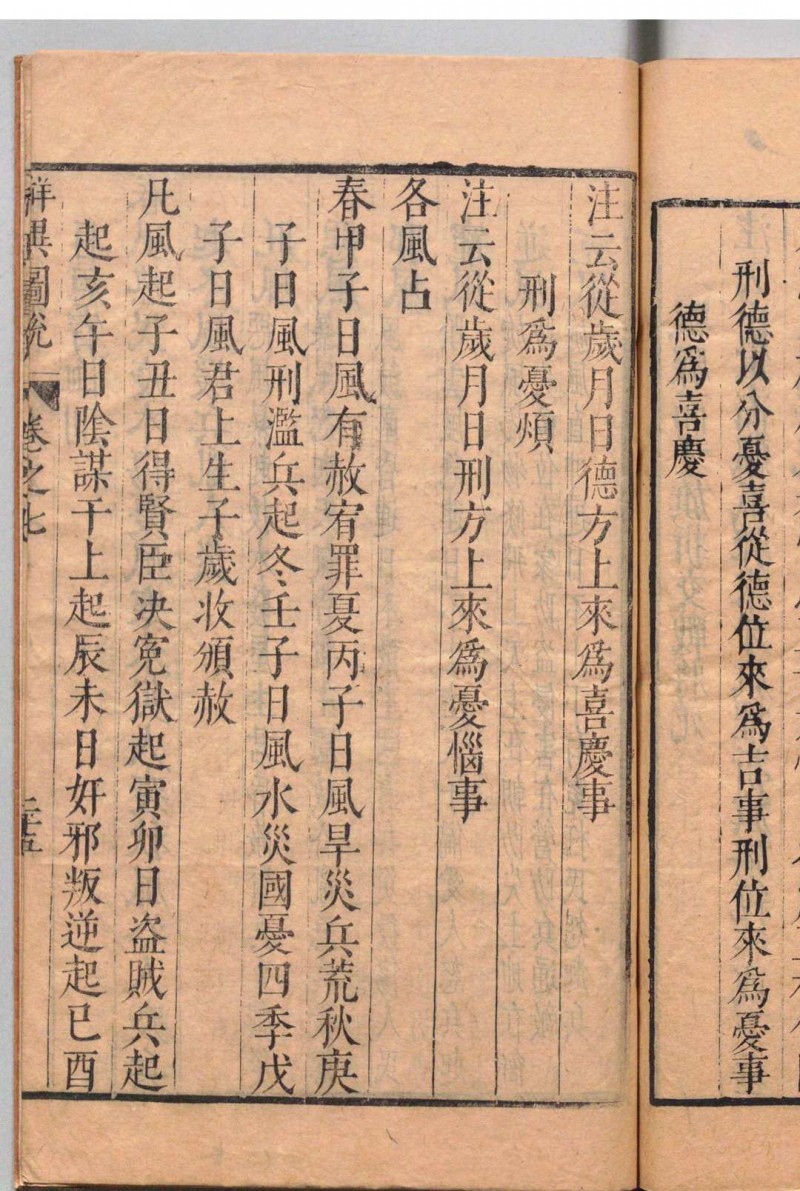 刑德以分憂喜從德位來爲吉事刑位來爲憂事
德爲喜慶
注云從歲月日德方上來爲喜慶事
刑爲憂煩
注云從歲月日刑方上來爲憂惱事
各風占
春甲子日風有赦宥罪夏丙子日風旱災兵荒秋庚
子日風刑濫兵起冬壬子日風水災國憂四季戊
子日風君上生子歲收頒赦
凡風起子丑日得賢臣决寃獄起寅卯日盗賊兵起
起亥午日陰謀干上起辰未日奸邪叛逆起巳酉
祥異圖說 卷之七 二十五